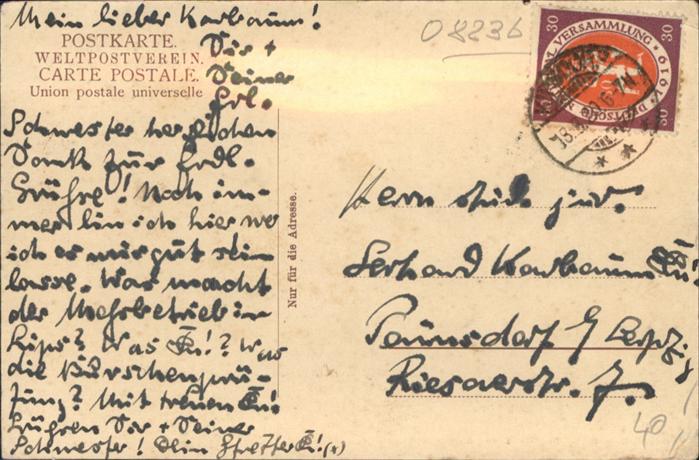 Mein lieber Karbaum!
08236
POSTKARTE.
WELTPOSTVEREIN.
CARTE POSTALE.
Union postale universelle
Dir +
Deiner
Frl.
Schwester herzlichen
Dank für frdl.
Grüße! Noch im-
mer bin ich hier wo
ich es mir gut sein
lasse. Was macht
der Mehrbetrieb in
Lips? Was !? Was
die Burschenprü-
fung? Mit treuen
Grüßen Dir + Deiner
Schwester! Dein
Nur für die Adresse.
30 30
NATIONAL-VERSAMMLUNG 1919
DEUTSCHE
30 30
Herrn stud. jur.
Gerhard Karbaum
Paunsdorf b/ Leipzig
Riesaerstr. 7.
40